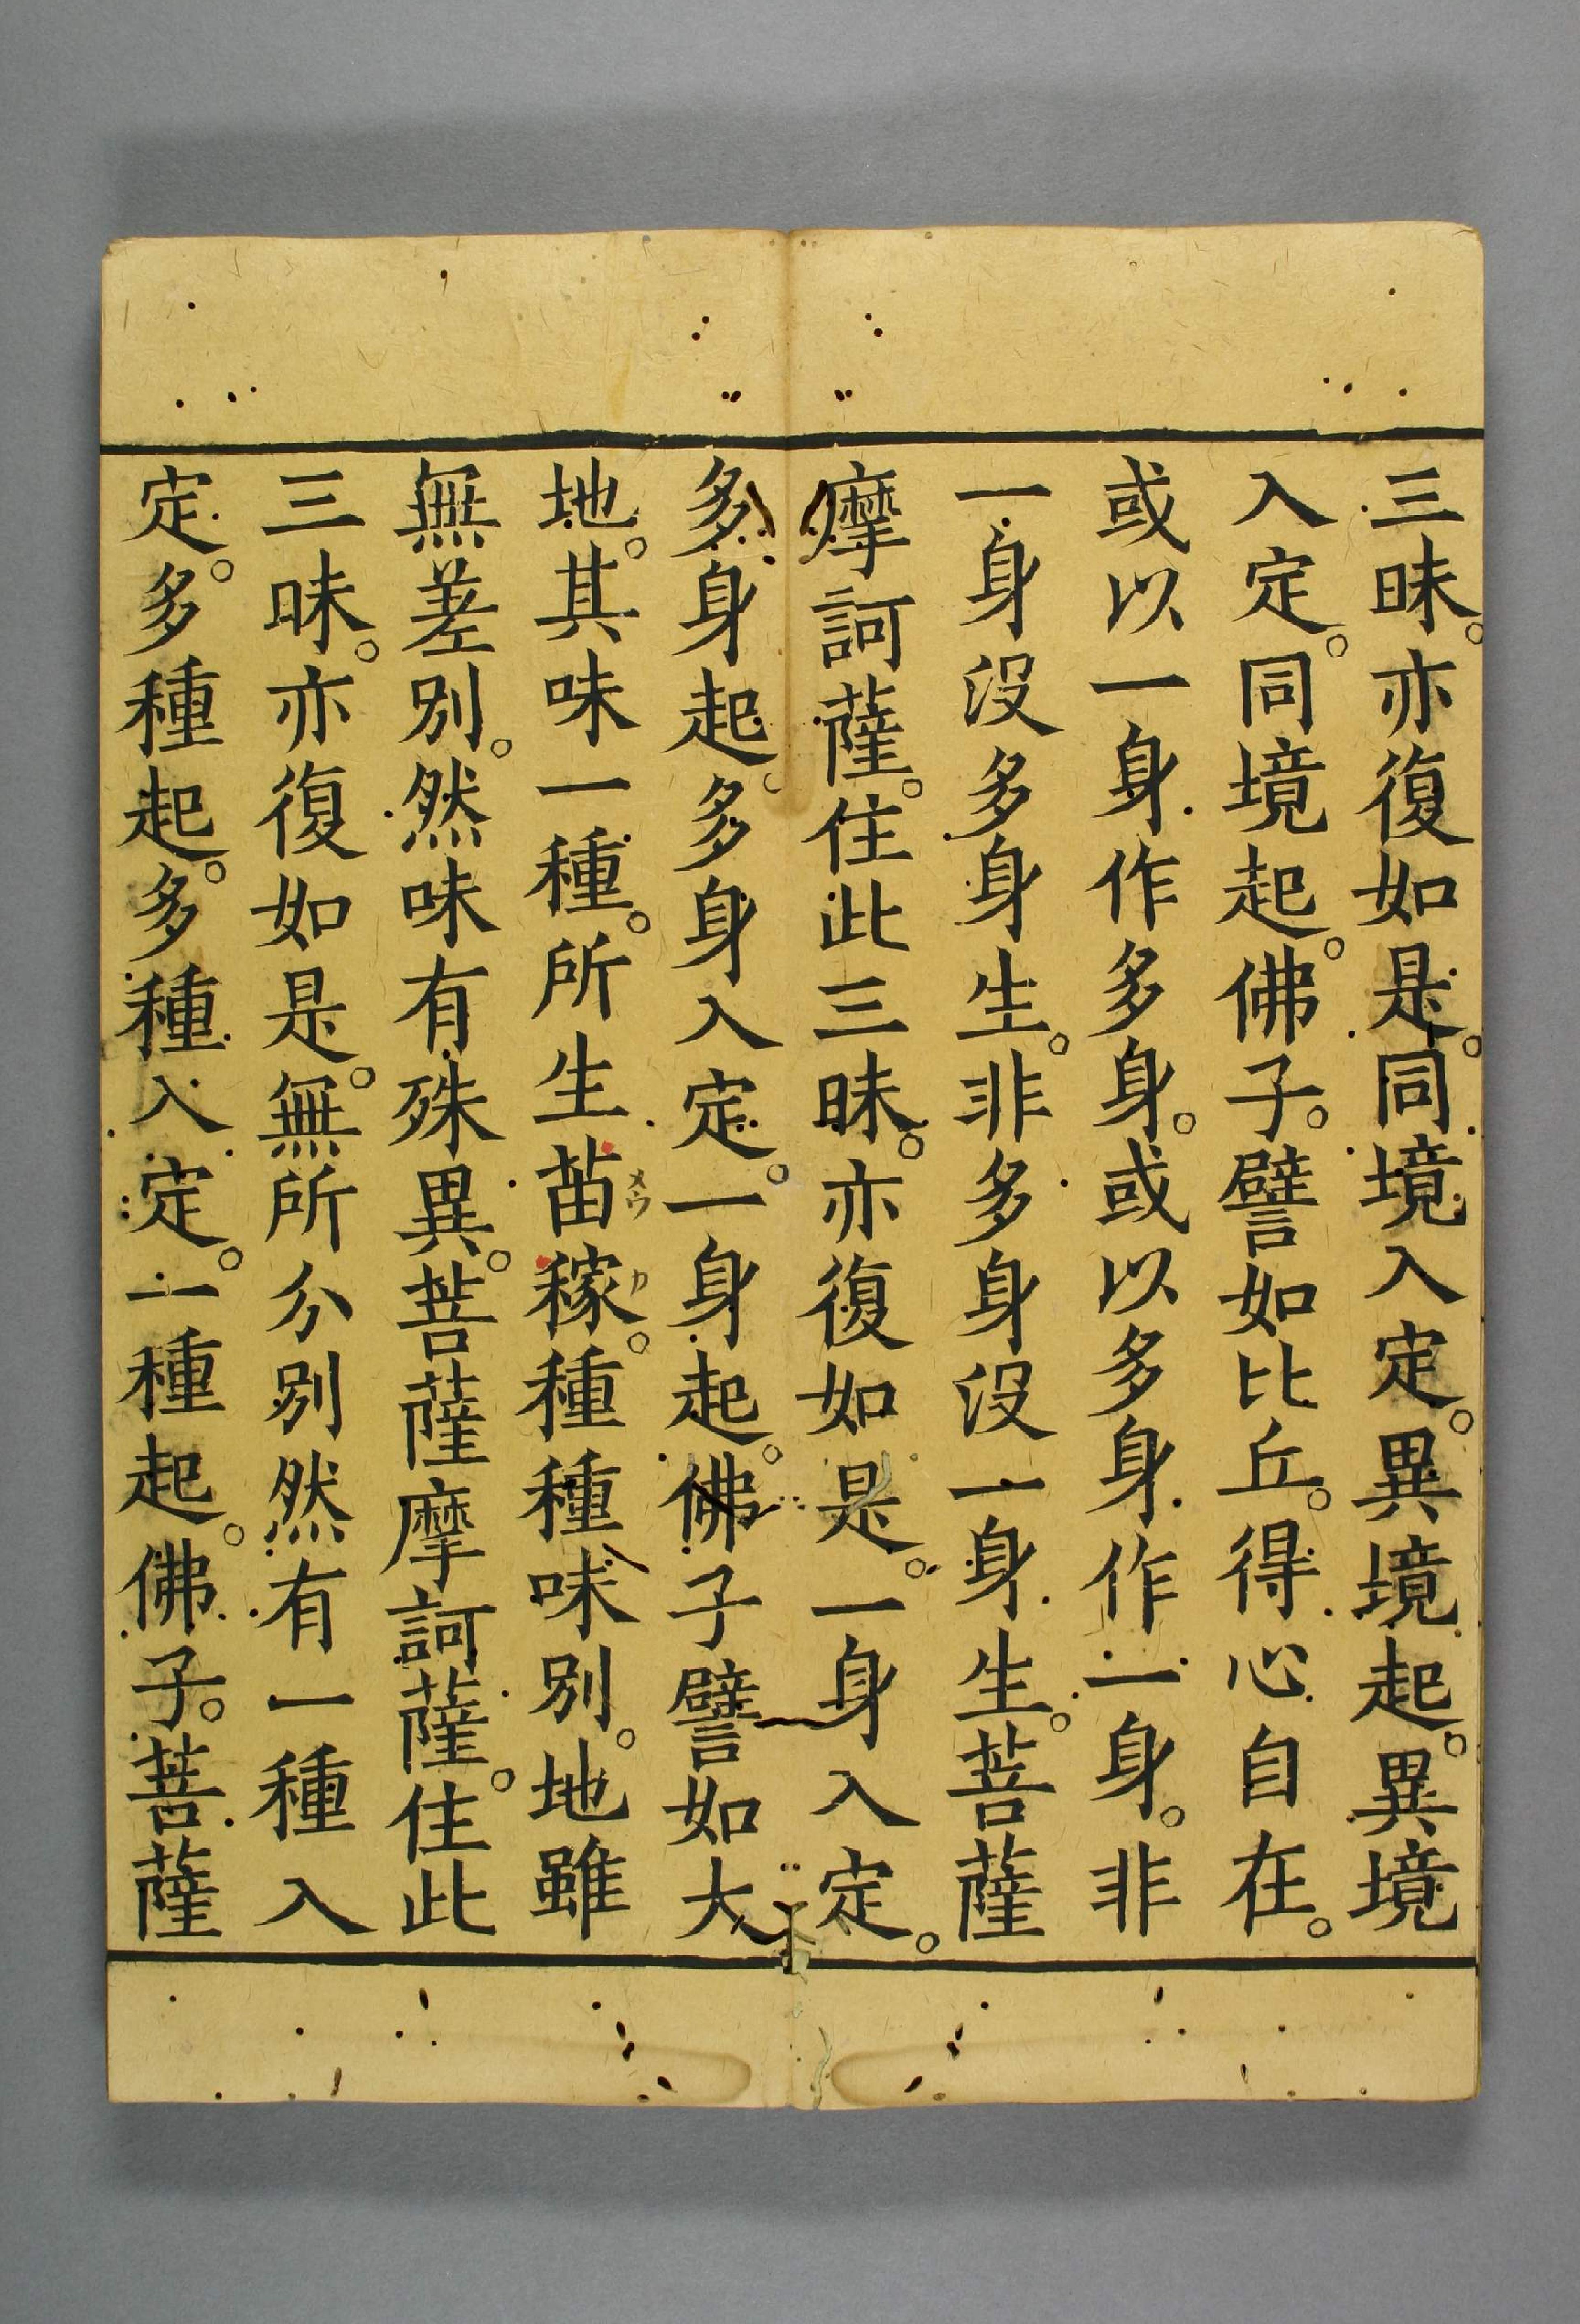 三昧。亦復如是。同境入定。異境起。異境
入定。同境起。佛子。譬如比丘。得心自在。
或以一身作多身。或以多身作一身。非
一身没多身生。非多身没一身生。菩薩
摩訶薩。住此三昧。亦復如是。一身入定。
多身起。多身入定。一身起。佛子譬如大
地。其味一種。所生苗メウ稼カ。種種味別。地雖
無差別。然味有殊異。菩薩摩訶薩。住此
三昧。亦復如是。無所分別然有一種入
定。多種起。多種入定。一種起。佛子。菩薩